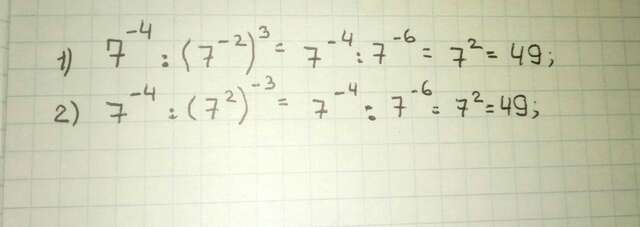 1) 7⁻⁴ : (7⁻²)³ = 7⁻⁴ : 7⁻⁶ = 7² = 49;
2) 7⁻⁴ : (7²)⁻³ = 7⁻⁴ : 7⁻⁶ = 7² = 49;